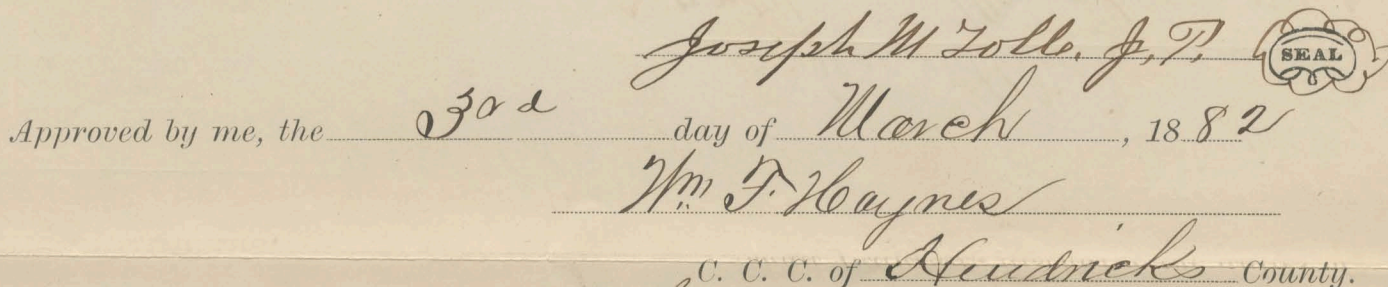 Joseph M Tolle. J, P, SEAL
Approved by me, the 3rd day of March, 1882
Wm F. Haynes
C. C. C. of Hendricks County.